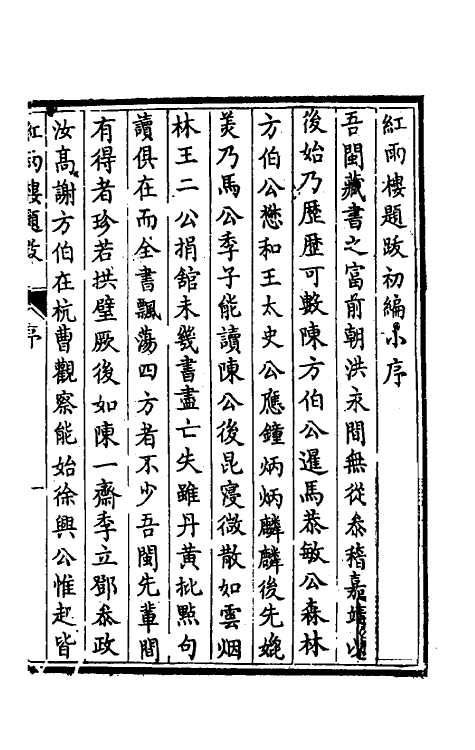 紅雨樓題跋初編小序
吾閩藏書之富前朝洪永間無從叅稽嘉靖以
後始乃歷歷可數陳方伯公暹馬恭敏公森林
方伯公懋和王太史公應鐘炳炳麟麟後先娩
美乃馬公季子能讀陳公後昆寖微散如雲烟
林王二公捐舘未幾書盡亡失雖丹黃批點句
讀俱在而全書飄蕩四方者不少吾閩先輩間
有得者珍若拱璧厥後如陳一齋季立鄧叅政
汝高謝方伯在杭曹觀察能始徐興公惟起皆
紅雨樓題跋
序
一